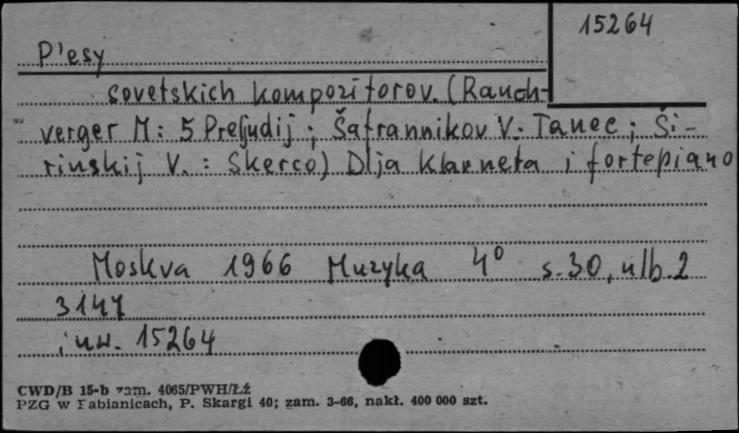 15264
P'esy
sovetskich kompozitorov. (Rauch-
verger M: 5 Preljudij; Šafrannikov V: Tanec; Ši-
rinskij V. : Skerco) Dlja klarneta i fortepiano
Moskva 1966 Muzyka 4° s. 30, nlb. 2
3147
inw. 15264
CWD/B 15-b zam. 4065/PWH/Łź
PZG w Pabianicach, P. Skargi 40; zam. 3-66, nakł. 400 000 szt.